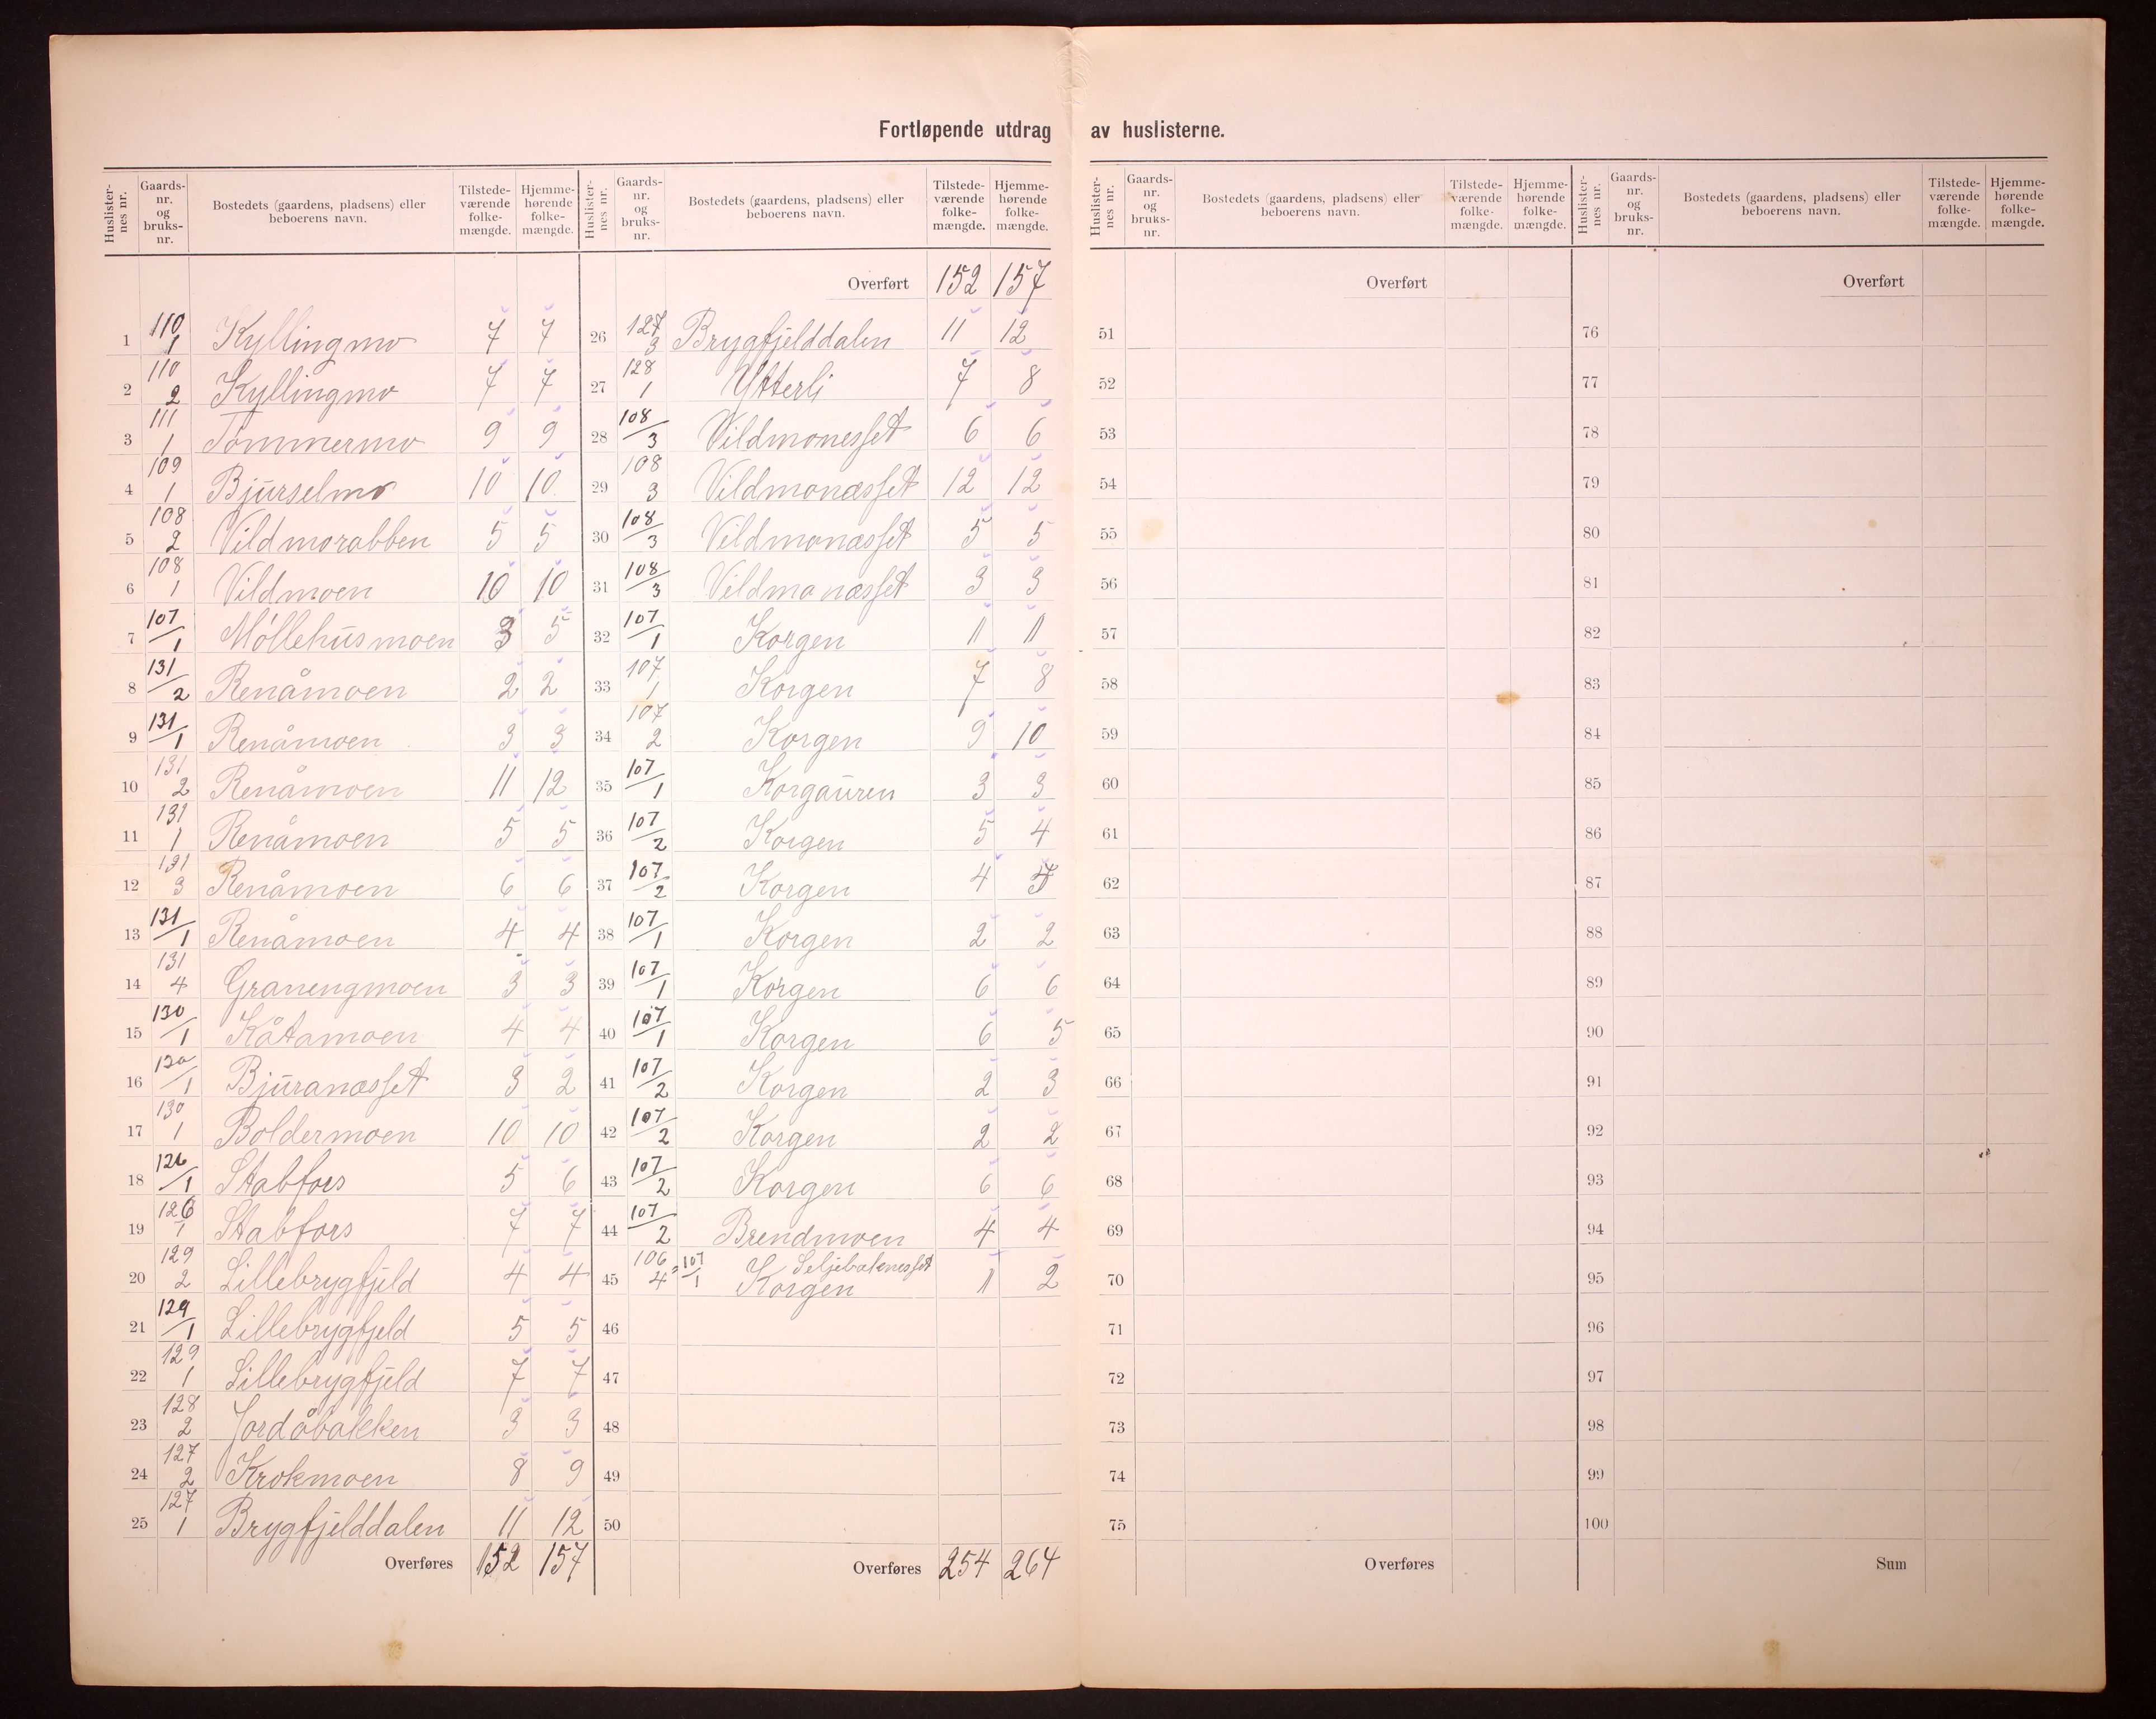 Fortløpende utdrag av huslisterne.
Huslister-nes nr. | Gaards-nr. og bruks-nr. | Bostedets (gaardens, pladsens) eller beboerens navn. | Tilstede-værende folke-mængde. | Hjemme-hørende folke-mængde.
1 110/1 Kyllingmo 7 7
2 110/2 Kyllingmo 7 7
3 111/1 Tømmermo 9 9
4 109/1 Bjurselmo 10 10
5 108/2 Vildmorabben 5 5
6 108/1 Vildmoen 10 10
7 107/1 Møllehusmoen 3 5
8 131/2 Renåmoen 2 2
9 131/1 Renåmoen 3 3
10 131/2 Renåmoen 11 12
11 131/1 Renåmoen 5 5
12 131/3 Renåmoen 6 6
13 131/1 Renåmoen 4 4
14 131/4 Granengmoen 3 3
15 130/1 Kåtamoen 4 4
16 130/1 Bjuranæsset 3 2
17 130/1 Boldermoen 10 10
18 126/1 Stabfors 5 6
19 126/1 Stabfors 7 7
20 129/2 Lillebrygfjeld 4 4
21 129/1 Lillebrygfjeld 5 5
22 129/1 Lillebrygfjeld 7 7
23 128/2 Jordåbakken 3 3
24 127/2 Krokmoen 8 9
25 127/1 Brygfjelddalen 11 12
Overføres 152 157
Huslister-nes nr. | Gaards-nr. og bruks-nr. | Bostedets (gaardens, pladsens) eller beboerens navn. | Tilstede-værende folke-mængde. | Hjemme-hørende folke-mængde.
Overført 152 157
26 127/3 Brygfjelddalen 11 12
27 128/1 Ytterli 7 8
28 108/3 Vildmonesset 6 6
29 108/3 Vildmonæsset 12 12
30 108/3 Vildmonæsset 5 5
31 108/3 Vildmonæsset 3 3
32 107/1 Korgen 1 1
33 107/1 Korgen 7 8
34 107/2 Korgen 9 10
35 107/1 Korgauren 3 3
36 107/2 Korgen 5 4
37 107/2 Korgen 4
38 107/1 Korgen 2 2
39 107/1 Korgen 6 6
40 107/1 Korgen 6 5
41 107/2 Korgen 2 3
42 107/2 Korgen 2 2
43 107/2 Korgen 6 6
44 107/2 Brendmoen 4 4
45 106/4 107/1 Seljebaknesset Korgen 1 2
46
47
48
49
50
Overføres 254 264
Huslister-nes nr. | Gaards-nr. og bruks-nr. | Bostedets (gaardens, pladsens) eller beboerens navn. | Tilstede-værende folke-mængde. | Hjemme-hørende folke-mængde.
Overført
51
52
53
54
55
56
57
58
59
60
61
62
63
64
65
66
67
68
69
70
71
72
73
74
75
Overføres
Huslister-nes nr. | Gaards-nr. og bruks-nr. | Bostedets (gaardens, pladsens) eller beboerens navn. | Tilstede-værende folke-mængde. | Hjemme-hørende folke-mængde.
Overført
76
77
78
79
80
81
82
83
84
85
86
87
88
89
90
91
92
93
94
95
96
97
98
99
100
Sum